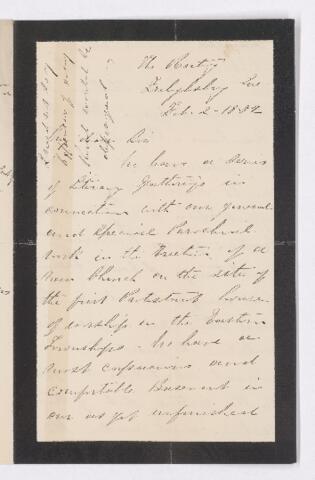 The Rectory
Frelighsburg Que
Feb. 2 - 1892
Dear Sir
We have a series
of Literary Gatherings in
connection with our general
and special Parochial
work in the Erection of a
New Church on the site of
the first Protestant house
of worship in the Eastern
Townships - We have a
most capacious and
comfortable Basement in
our as yet unfinished
expenses of any
would be